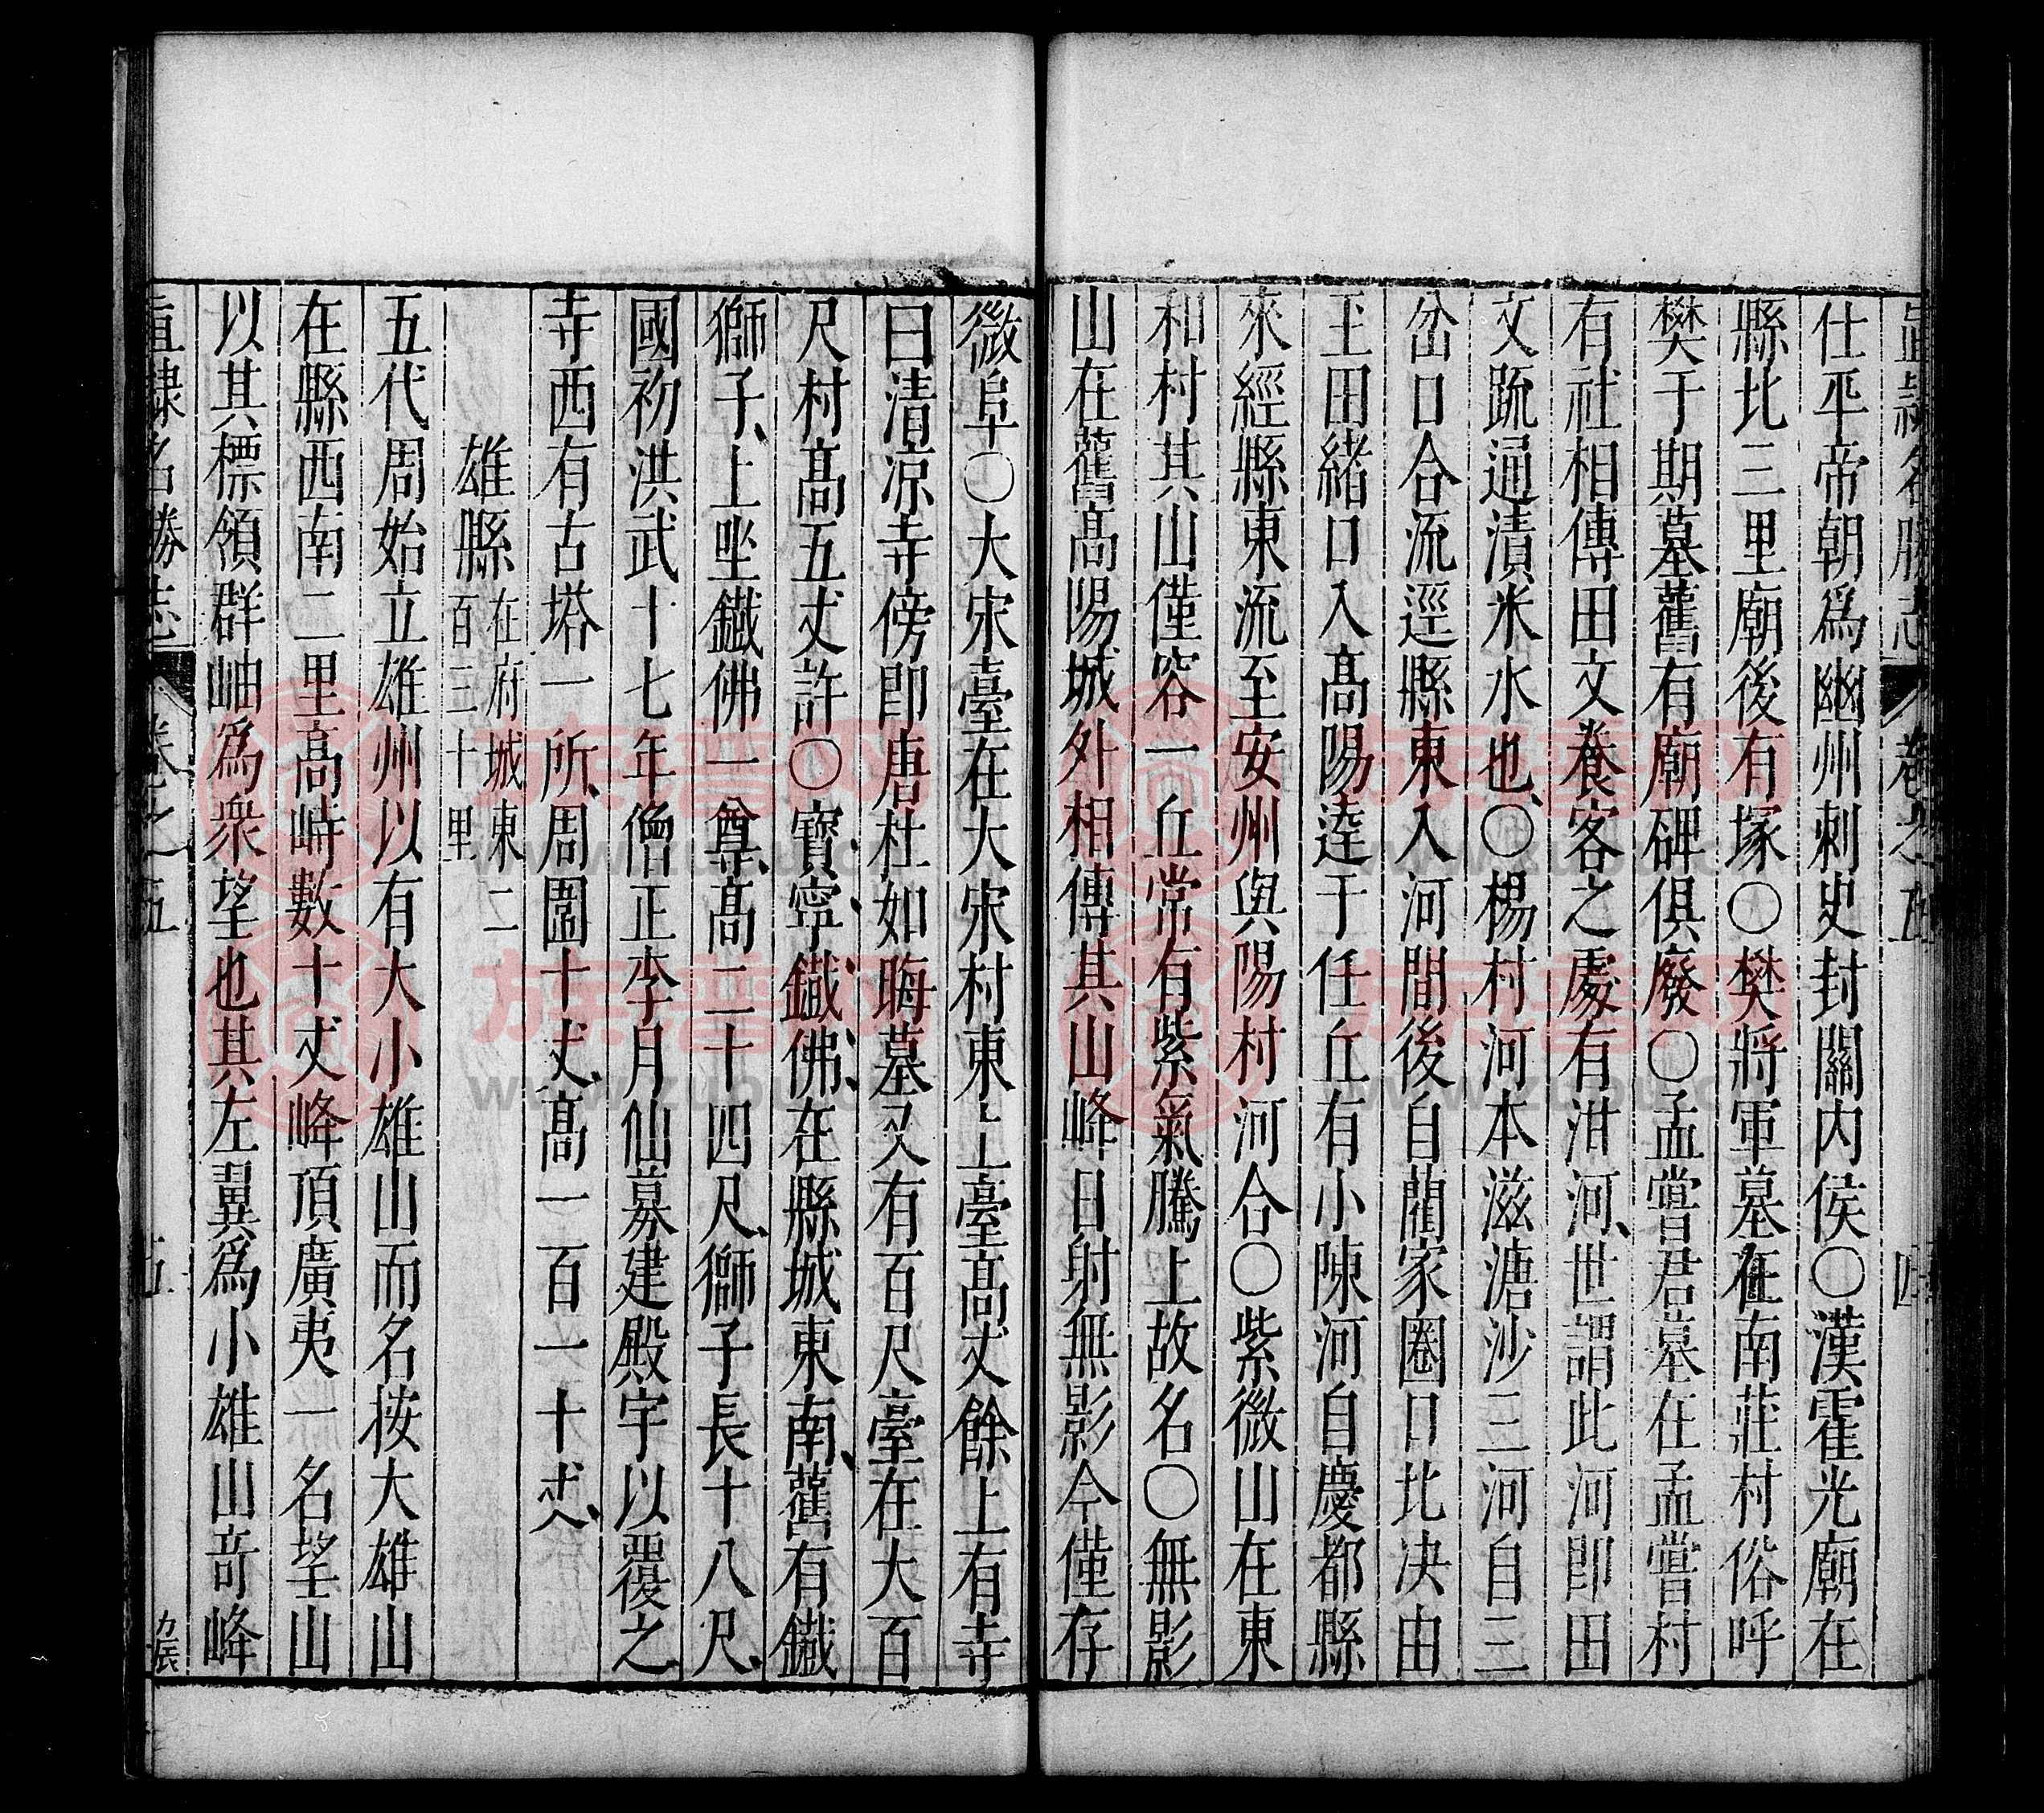 直隸名勝志 卷之五 四
仕平帝朝爲幽州刺史封關內侯○漢霍光廟在
縣北三里廟後有塚○樊將軍墓在南莊村俗呼
樊于期墓舊有廟碑俱廢○孟嘗君墓在孟嘗村
有社相傳田文養客之處有泔河世謂此河即田
文䟽通漬米水也○楊村河本滋溏沙三河自三
岔口合流逕縣東入河間後自藺家圈口北決由
王田緒口入高陽逵于任丘有小陳河自慶都縣
來經縣東流至安州與陽村河合○紫微山在東
和村其山僅容一丘常有紫氣騰上故名○無影
山在舊高陽城外相傳其山峰日射無影今僅存
微阜○大宋臺在大宋村東上臺高丈餘上有寺
曰清凉寺傍即唐杜如晦墓又有百尺臺在大百
尺村高五丈許○寶寧鐵佛在縣城東南舊有鐵
獅子上坐鐵佛一尊高二十四尺獅子長十八尺
國初洪武十七年僧正李月仙募建殿宇以覆之
寺西有古塔一所周圍十丈高一百一十丈
雄縣 在府城東二百三十里
五代周始立雄州以有大小雄山而名按大雄山
在縣西南二里高峙數十丈峰頂廣夷一名望山
以其標領群岫爲衆望也其左翼爲小雄山竒峰
直隸名勝志 卷之五 五
族譜网
www.zupu.cn
族譜网
www.zupu.cn
族譜网
www.zupu.cn
族譜网
www.zupu.cn